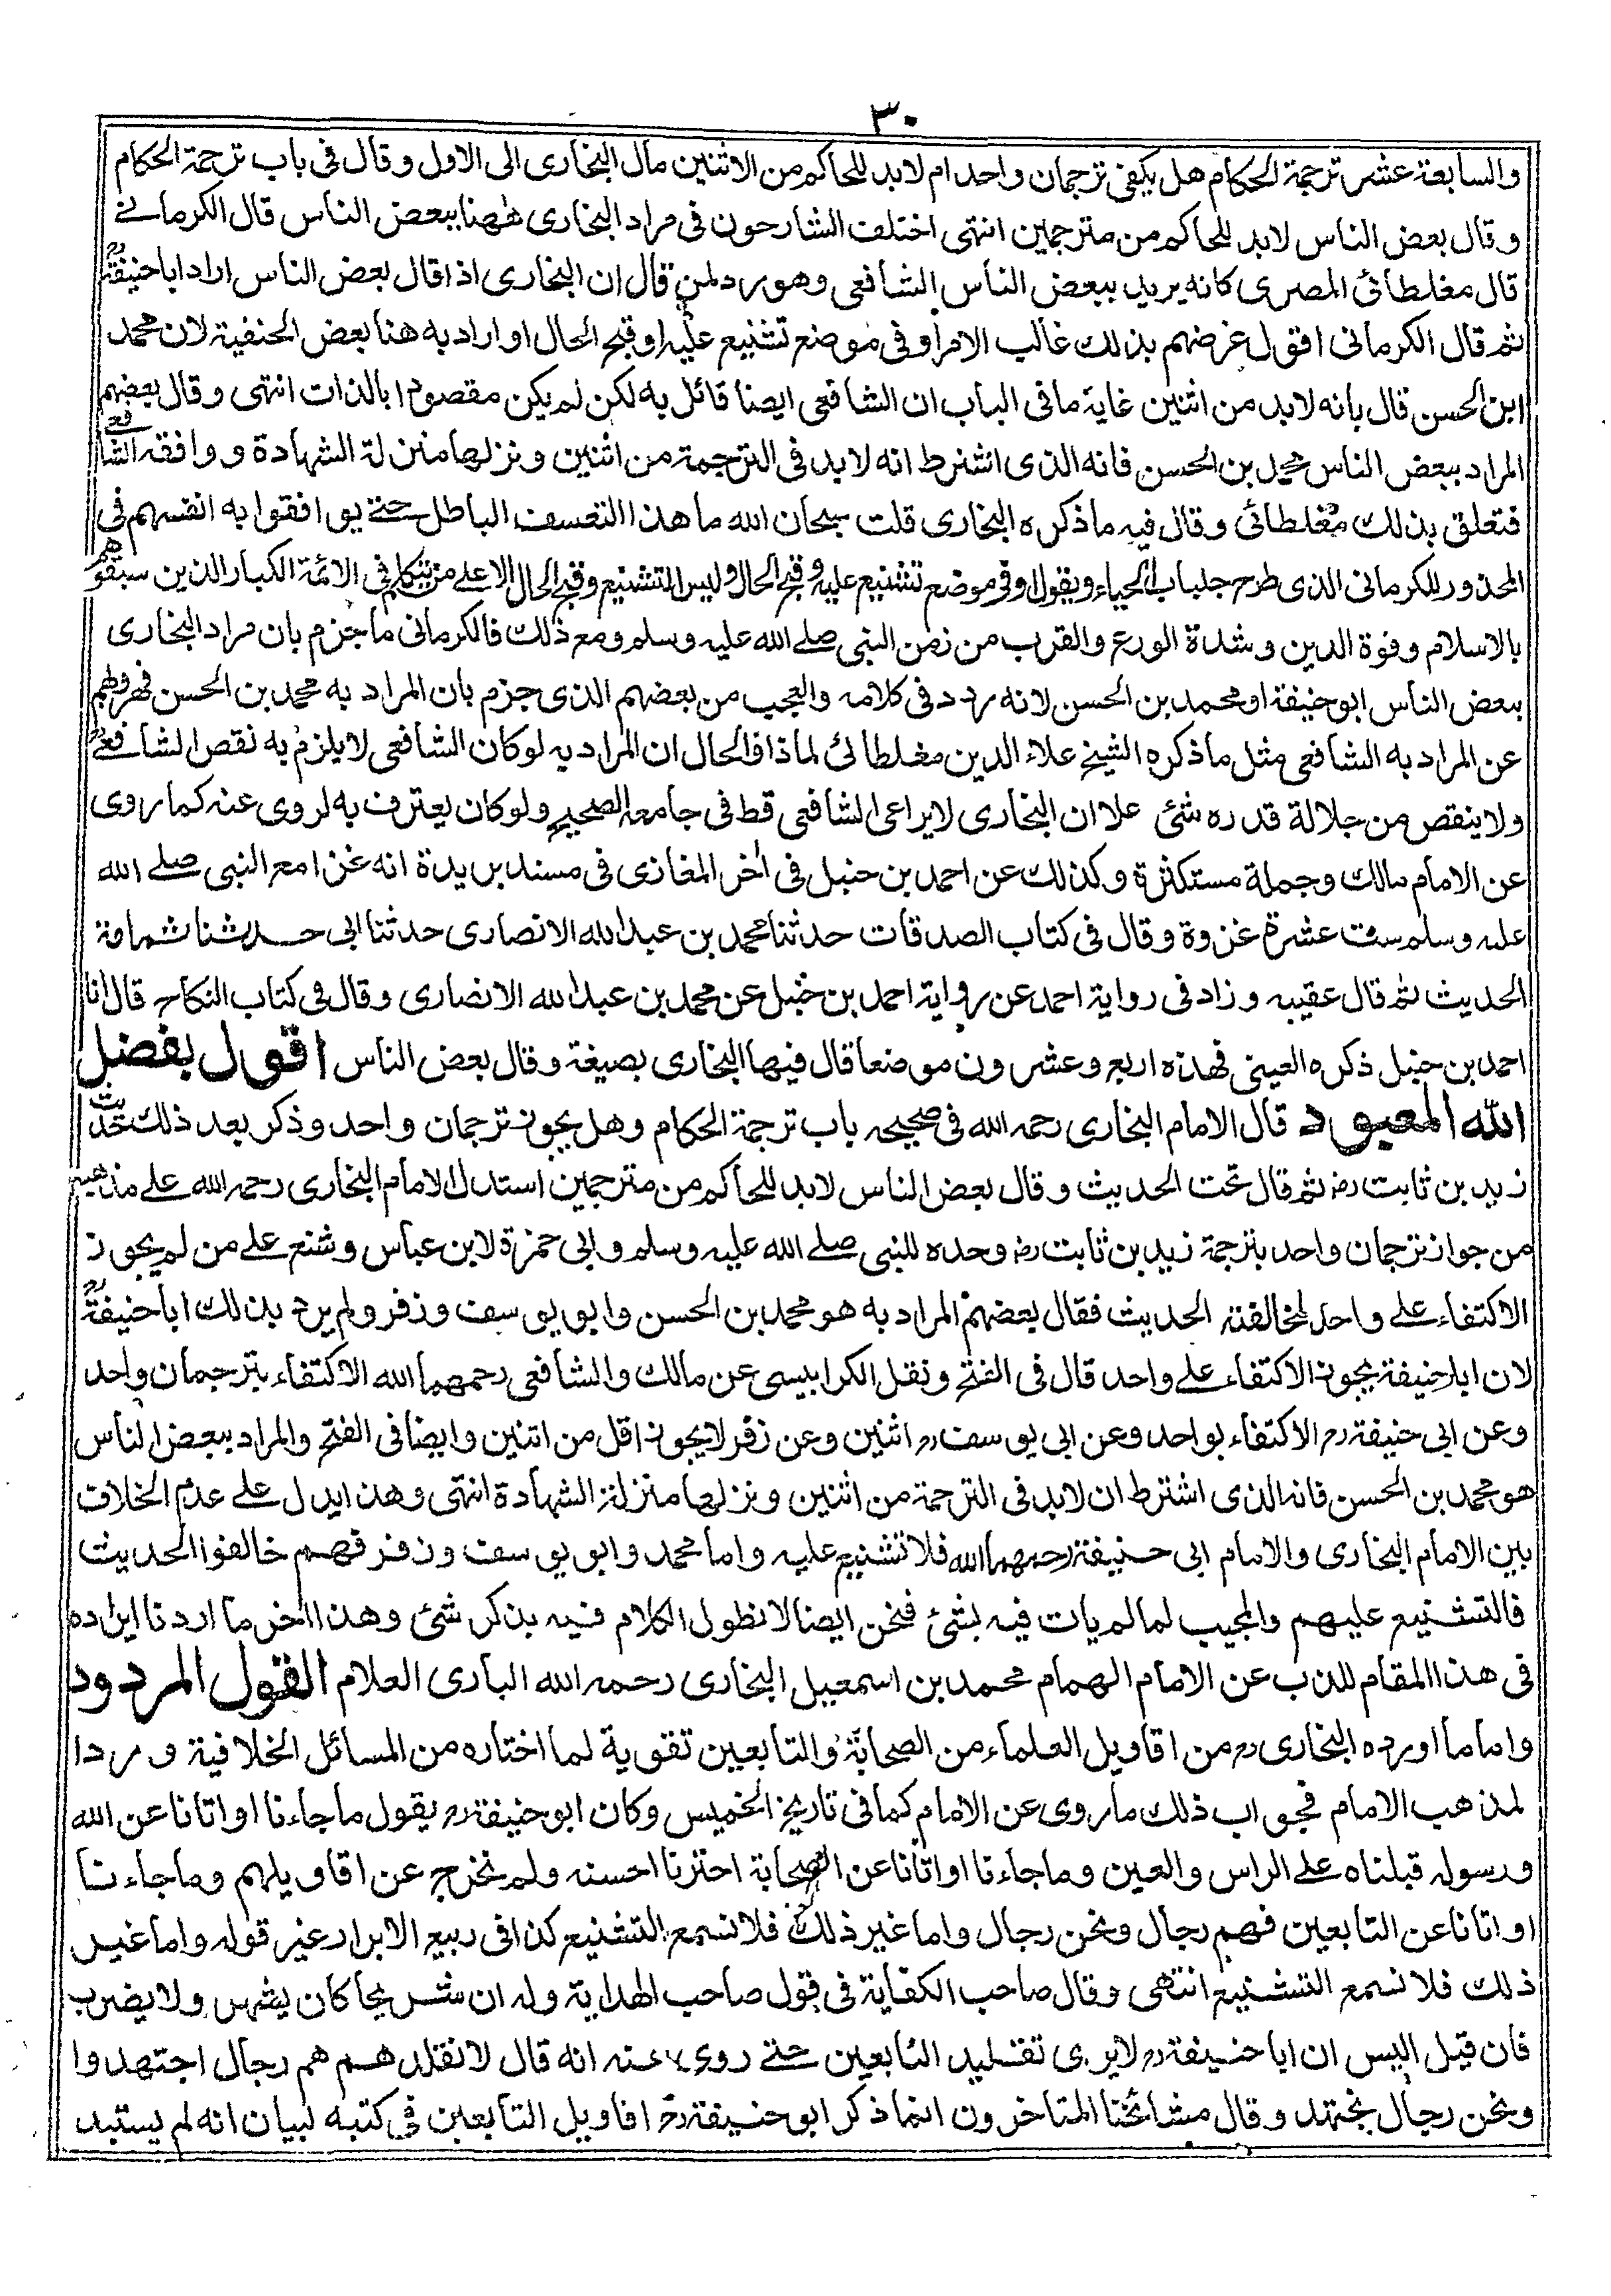 ٣٠
والسابعة عشر ترجمة الحكام هل يكفى ترجمان واحد ام لابد للحاكم من الاثنين مال البخارى الى الاول وقال فى باب ترجمة الحكام
وقال بعض الناس لابد للحاكم من مترجمين انتهى اختلف الشارحون فى مراد البخارى ههنا ببعض الناس قال الكرمانے
قال مغلطائى المصرى كانه يريد ببعض الناس الشافعى وهو رد لمن قال ان البخارى اذا قال بعض الناس اراد ابا حنيفة رح
ثم قال الكرمانى اقول غرضهم بذلك غالب الامر او فى موضع تشنيع عليه او قبح الحال او اراد به هنا بعض الحنفية لان محمد
ابن الحسن قال بانه لابد من اثنين غاية ما فى الباب ان الشافعى ايضا قائل به لكن لم يكن مقصودا بالذات انتهى وقال بعضهم
المراد ببعض الناس محمد بن الحسن فانه الذى اشترط انه لابد فى الترجمة من اثنين ونزلها منزلة الشهادة ووافقه الشافعے
فتعلق بذلك مغلطائى وقال فيه ما ذكره البخارى قلت سبحان الله ما هذا التعسف الباطل حتے يوافقوا به انفسهم فى
المحذور للكرمانى الذى طرح جلباب الحياء ويقول او فى موضع تشنيع عليه وقبح الحال وليس التشنيع وقبح الحال الا على من يتكلم فى الائمة الكبار الذين سبقوهم
بالاسلام وقوة الدين وشدة الورع والقرب من زمن النبى صلے الله عليه وسلم ومع ذلك فالكرمانى ما جزم بان مراد البخارى
ببعض الناس ابو حنيفة او محمد بن الحسن لانه ردد فى كلامه والعجب من بعضهم الذى جزم بان المراد به محمد بن الحسن فهروبهم
عن المراد به الشافعى مثل ما ذكره الشيخ علاء الدين مغلطائى لماذا فالحال ان المراد به لو كان الشافعى لا يلزم به نقص الشافعے رح
ولا ينقص من جلالة قدره شئ علا ان البخارى لا يراعى الشافعى قط فى جامعه الصحيح ولو كان يعترف به لروى عنه كما روى
عن الامام مالك وجملة مستكثرة وكذلك عن احمد بن حنبل فى اخر المغازى فى مسند بريدة انه غزا مع النبى صلے الله
عليه وسلم ست عشرة غزوة وقال فى كتاب الصدقات حدثنا محمد بن عبد الله الانصارى حدثنا ابى حدثنا ثمامة
الحديث ثم قال عقيبه وزاد فى رواية احمد عن رواية احمد بن حنبل عن محمد بن عبد الله الانصارى وقال فى كتاب النكاح قال انا
احمد بن حنبل ذكره العينى فهذه اربع وعشرون موضعا قال فيها البخارى بصيغة وقال بعض الناس اقول بفضل
الله المعبود قال الامام البخارى رحمه الله فى صحيحه باب ترجمة الحكام وهل يجوز ترجمان واحد وذكر بعد ذلك حديث
زيد بن ثابت رض ثم قال تحت الحديث وقال بعض الناس لابد للحاكم من مترجمين استدل الامام البخارى رحمه الله علے مذهبه
من جواز ترجمان واحد بترجمة زيد بن ثابت رض وحده للنبى صلے الله عليه وسلم وابى حمزة لابن عباس وشنع علے من لم يجوز
الاكتفاء علے واحد لمخالفته الحديث فقال بعضهم المراد به هو محمد بن الحسن وابو يوسف وزفر ولم يرد بذلك ابا حنيفة رح
لان ابا حنيفة يجوز الاكتفاء علے واحد قال فى الفتح ونقل الكرابيسى عن مالك والشافعى رحمهما الله الاكتفاء بترجمان واحد
وعن ابى حنيفة رح الاكتفاء بواحد وعن ابى يوسف رح اثنين وعن زفر لا يجوز اقل من اثنين وايضا فى الفتح والمراد ببعض الناس
هو محمد بن الحسن فانه الذى اشترط ان لابد فى الترجمة من اثنين ونزلها منزلة الشهادة انتهى وهذا يدل علے عدم الخلاف
بين الامام البخارى والامام ابى حنيفة رحمهما الله فلا تشنيع عليه واما محمد وابو يوسف وزفر فهم خالفوا الحديث
فالتشنيع عليهم والمجيب لما لم يات فيه بشئ فنحن ايضا لا نطول الكلام فيه بذكر شئ وهذا اخر ما اردنا ايراده
فى هذا المقام للذب عن الامام الهمام محمد بن اسمعيل البخارى رحمه الله البارى العلام القول المردود
واما ما اورده البخارى رح من اقاويل العلماء من الصحابة والتابعين تقوية لما اختاره من المسائل الخلافية وردا
لمذهب الامام فجواب ذلك ما روى عن الامام كما فى تاريخ الخميس وكان ابو حنيفة رح يقول ما جاءنا او اتانا عن الله
ورسوله قبلناه علے الراس والعين وما جاءنا او اتانا عن الصحابة اخترنا احسنه ولم نخرج عن اقاويلهم وما جاءنا
او اتانا عن التابعين فهم رجال ونحن رجال واما غير ذلك فلا نسمع التشنيع كذا فى ربيع الابرار غير قوله واما غير
ذلك فلا نسمع التشنيع انتهى وقال صاحب الكفاية فى قول صاحب الهداية وله ان شريحا كان يشهر ولا يضرب
فان قيل اليس ان ابا حنيفة رح لا يرى تقليد التابعين حتے روى عنه انه قال لا نقلدهم هم رجال اجتهدوا
ونحن رجال نجتهد وقال مشائخنا المتاخرون انما ذكر ابو حنيفة رح اقاويل التابعين فى كتبه لبيان انه لم يستبد